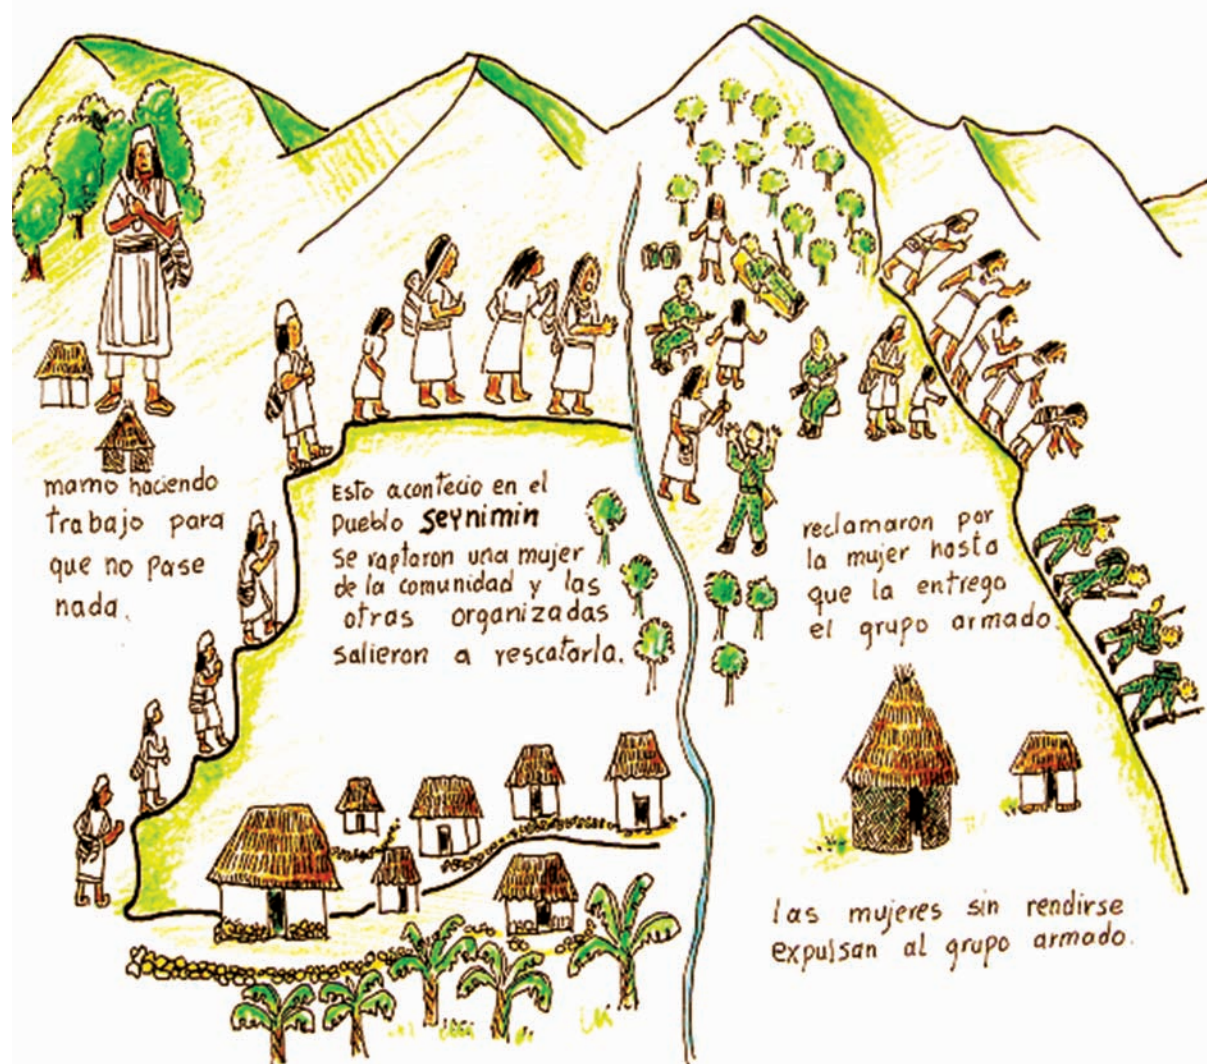 mamo haciendo
trabajo para
que no pase
nada.
Esto acontecio en el
pueblo seynimin
se raptaron una mujer
de la comunidad y las
otras organizadas
salieron a rescatarla.
reclamaron por
la mujer hasta
que la entrego
el grupo armado.
las mujeres sin rendirse
expulsan al grupo armado.